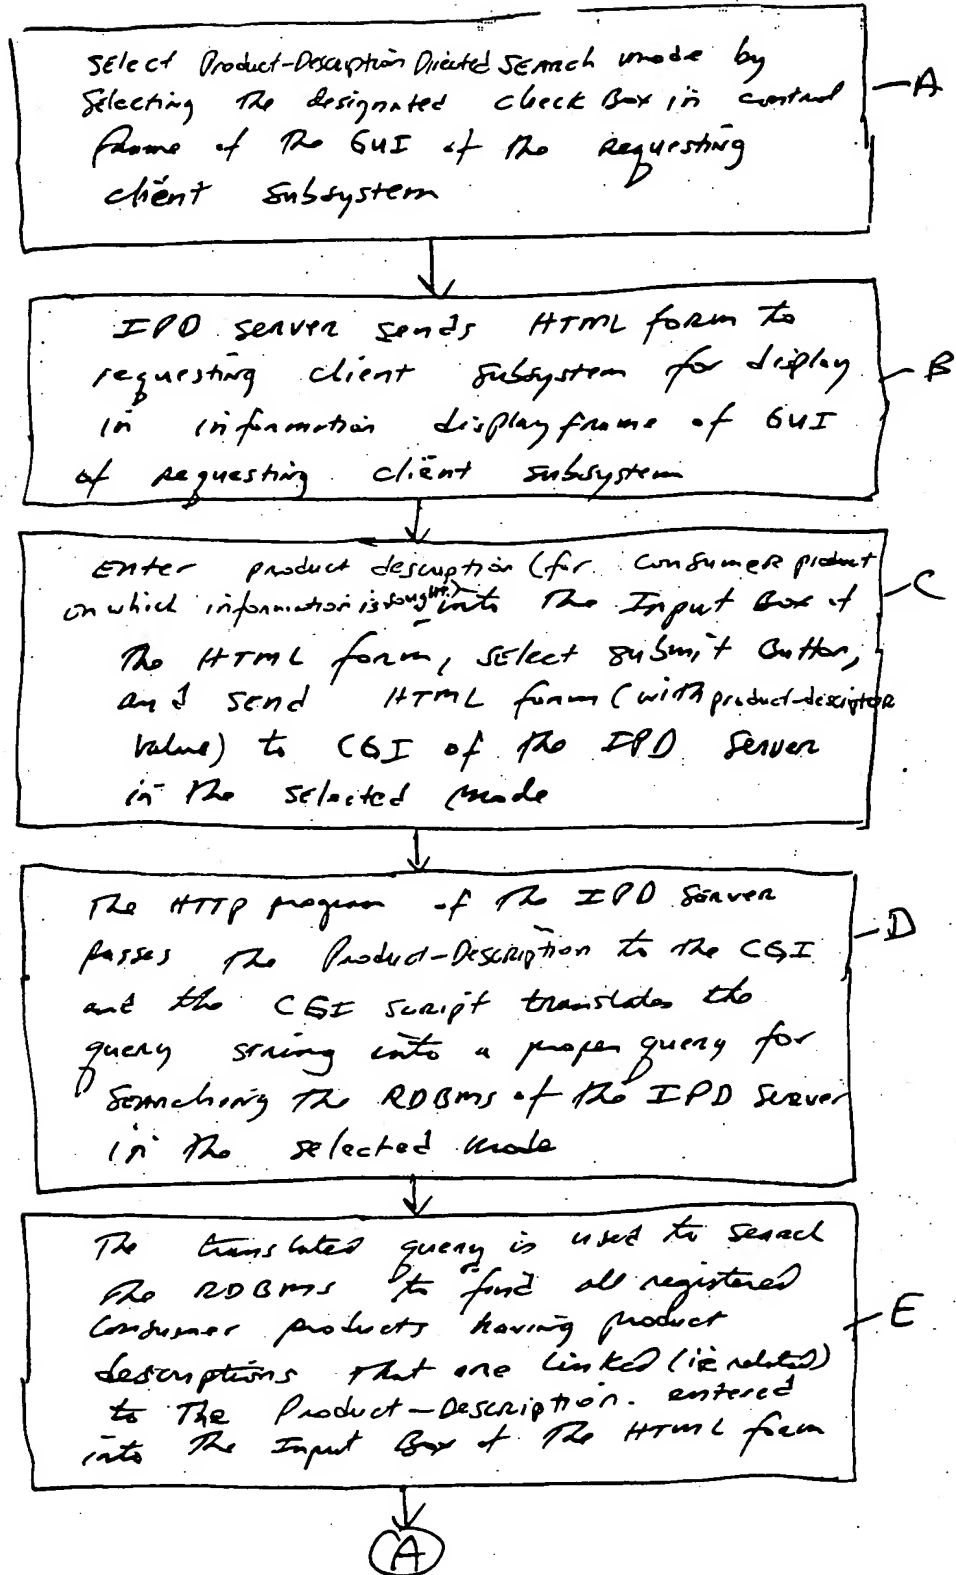 Select Product-Description Directed Search mode by
Selecting the designated check Box in control
frame of the GUI of the requesting
client subsystem
A
IPD server sends HTML form to
requesting client subsystem for display
in information display frame of GUI
of requesting client subsystem
B
Enter product description (for consumer product
on which information is sought) into the Input Box of
the HTML form, select submit Button,
and send HTML form (with product-descriptor
value) to CGI of the IPD Server
in the selected mode
C
The HTTP program of the IPD Server
passes the Product-Description to the CGI
and the CGI script translates the
query string into a proper query for
Searching the RDBMS of the IPD Server
in the selected mode
D
The translated query is used to search
the RDBMS to find all registered
Consumer products having product
descriptions that are linked (ie related)
to The Product-Description. entered
into the Input Box of the HTML form
E
A